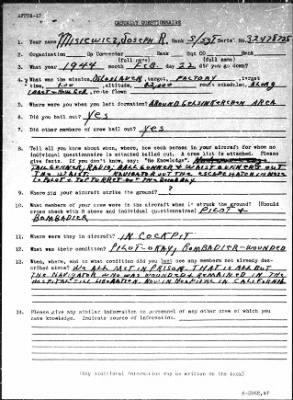 CASUALTY QUESTIONNAIRE
1. Your name MISIEWICZ, JOSEPH R. Rank S/SGT Serial No. 32478725
2. Organization Gp Commander Rank Sqn CO Rank
3. What year 1944 month FEB. day 22 did you go down?
4. What was the mission, target, FACTORY, target
time, altitude, route scheduled,
5. Where were you when you left formation? AROUND GELSENKIRCHEN AREA
6. Did you bail out? YES
7. Did other members of crew bail out? YES
8. Tell all you know about when, where, how each person in your aircraft for whom no
individual questionnaire is attached bailed out. A crew list is attached. Please
give facts. If you don't know, say: "No Knowledge".
TAIL GUNNER, RADIO, BALL GUNNER & WAIST GUNNERS OUT
THE WAIST. NAVIGATOR OUT THE ESCAPE HATCH IN NOSE
CO PILOT & TOP TURRET OUT THE BOMBAY
9. Where did your aircraft strike the ground? ?
10. What members of your crew were in the aircraft when it struck the ground? (Should
cross check with 8 above and individual questionnaires) PILOT &
BOMBADIER
11. Where were they in aircraft? IN COCKPIT
12. What was their condition? PILOT-OKAY, BOMBADIER-WOUNDED
13. When, where, and in what condition did you last see any members not already des-
cribed above? WE ALL MET IN PRISON. THAT IS ALL BUT
THE NAVIGATOR WHO WAS WOUNDED & REMAINED IN THE
HOSPITAL TILL LIBERATION. NOW IN HOSPITAL IN CALIFORNIA
14. Please give any similar information on personnel of any other crew of which you
have knowledge. Indicate source of information.
(Any additional information may be written on the back)